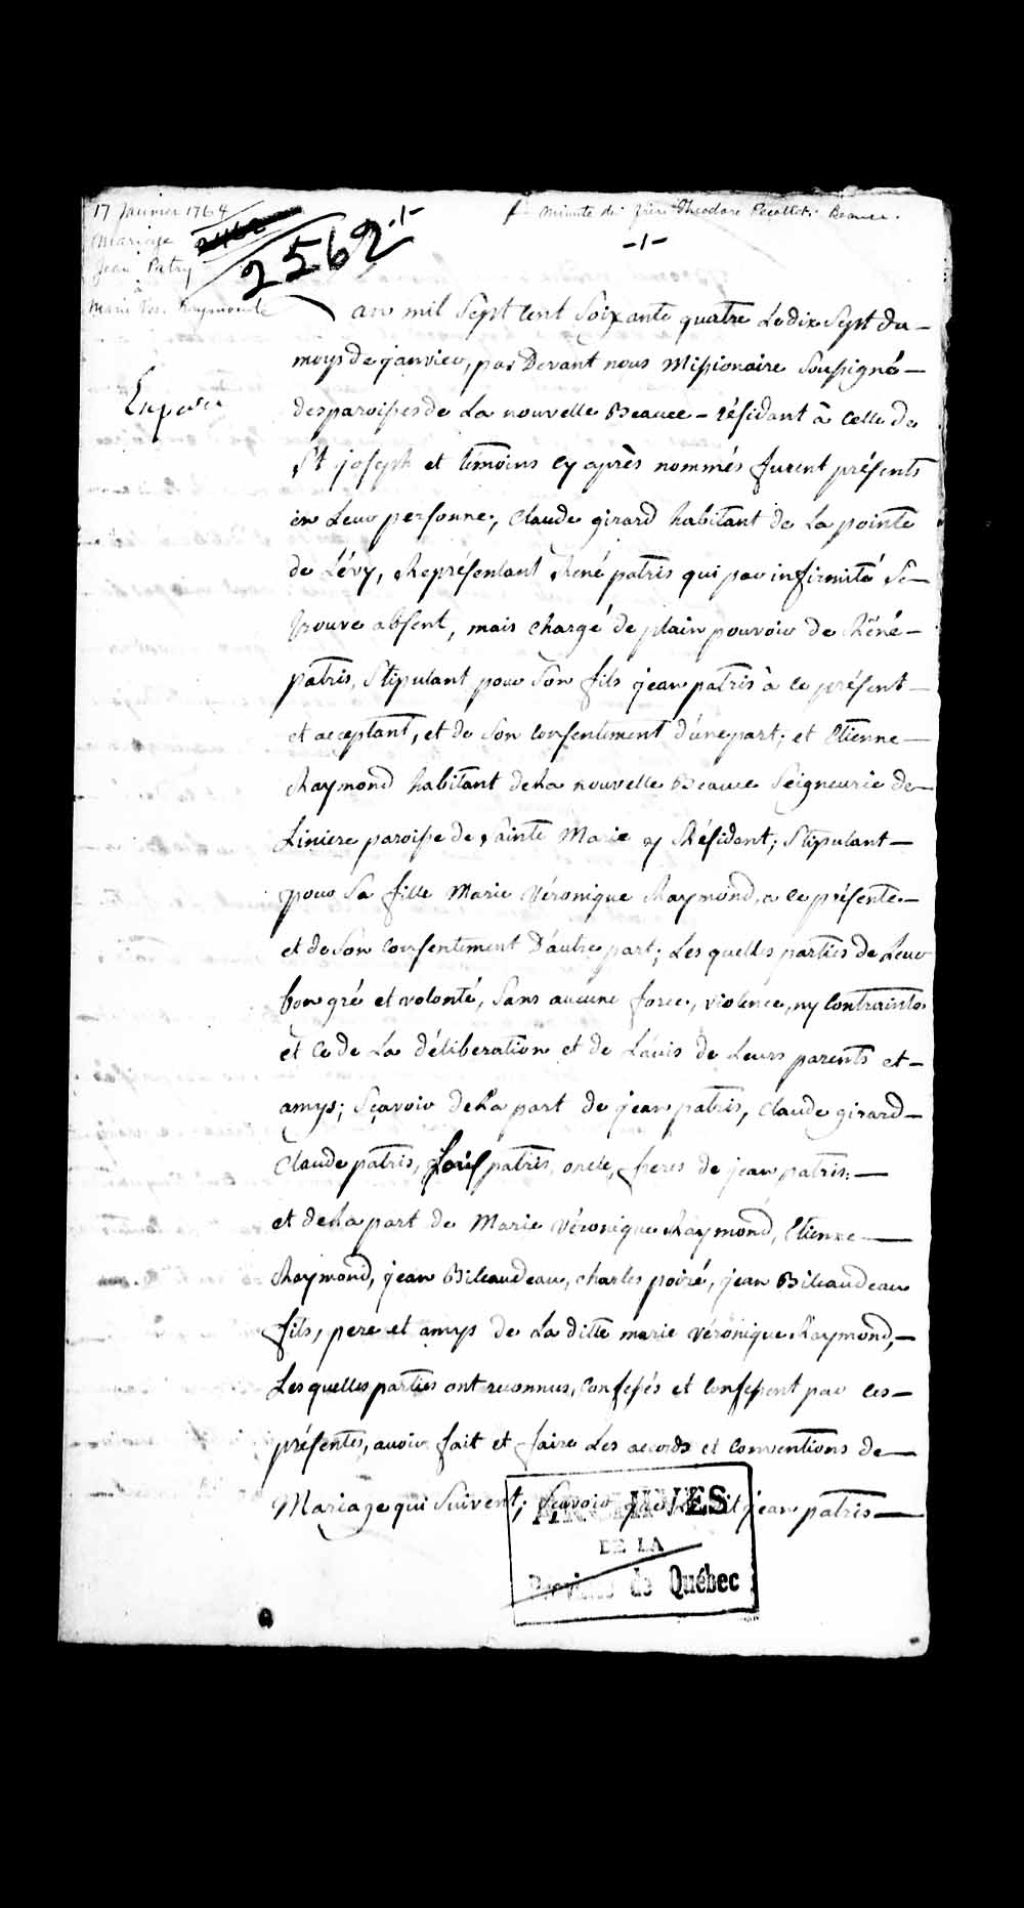 17 Janvier 1764
Minute de frère Théodore Récollet. Beauce.
Mariage
2562 -1-
-1-
Jean Patry
à
Marie Vér. Raymond
an mil Sept Cent Soixante quatre Le dix Sept du
moys de janvier, par Devant nous Missionaire Soussigné
des paroisses de La nouvelle Beauce - résidant à Celle de
St joseph et témoins Cy après nommés furent présents
en Leur personne, Claude girard habitant de La pointe
de Lévy, Représentant Réné patris qui par infirmité Se
trouve absent, mais chargé de plain pouvoir de Réné
patris, Stipulant pour Son fils jean patris à ce présent
et acceptant, et de Son Consentement d'une part; et Etienne
Raymond habitant de La nouvelle Beauce Seigneurie de
Liniere paroisse de Sainte Marie y Résident; Stipulant
pour Sa fille Marie Véronique Raymond, a ce présente
et de Son Consentement D'autre part; Les quelles parties de Leur
bon gré et volonté, Sans aucune force, violence, ny Contrainte
et Ce de La déliberation et de Lavis de Leurs parents et
amys; Sçavoir de La part de jean patris, Claude girard
Claude patris, patris, oncle, freres de jean patris;
et de La part de Marie Véronique Raymond, Etienne
Raymond, jean Bileaudeau, charles poiré, jean Bileaudeau
fils, pere et amys de La ditte marie véronique Raymond,
Les quelles parties ont reconnus, Confessés et Confessent par ces
présentes, avoir fait et faire Les accords et Conventions de
Mariage qui Suivent; Sçavoir que Le dit jean patris
ARCHIVES
DE LA
Province de Québec